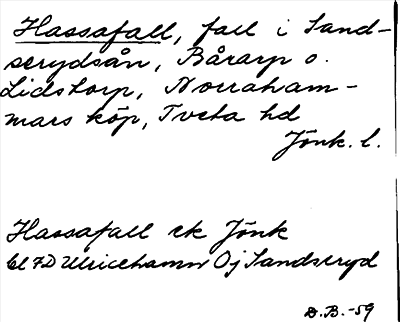 Hassafall, fall i Sand-
serydsån, Bårarp o.
Lidstorp, Norraham-
mars köp, Tveta hd
Jönk. l.
Hassafall ek Jönk
bl 7D Ulricehamn Oj Sandseryd
D.B.-59